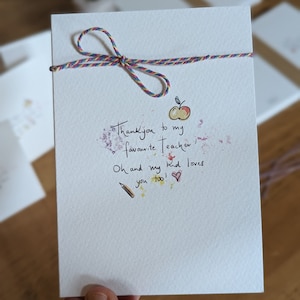 Thankyou to my
favourite Teacher
Oh and my kid loves
you too!